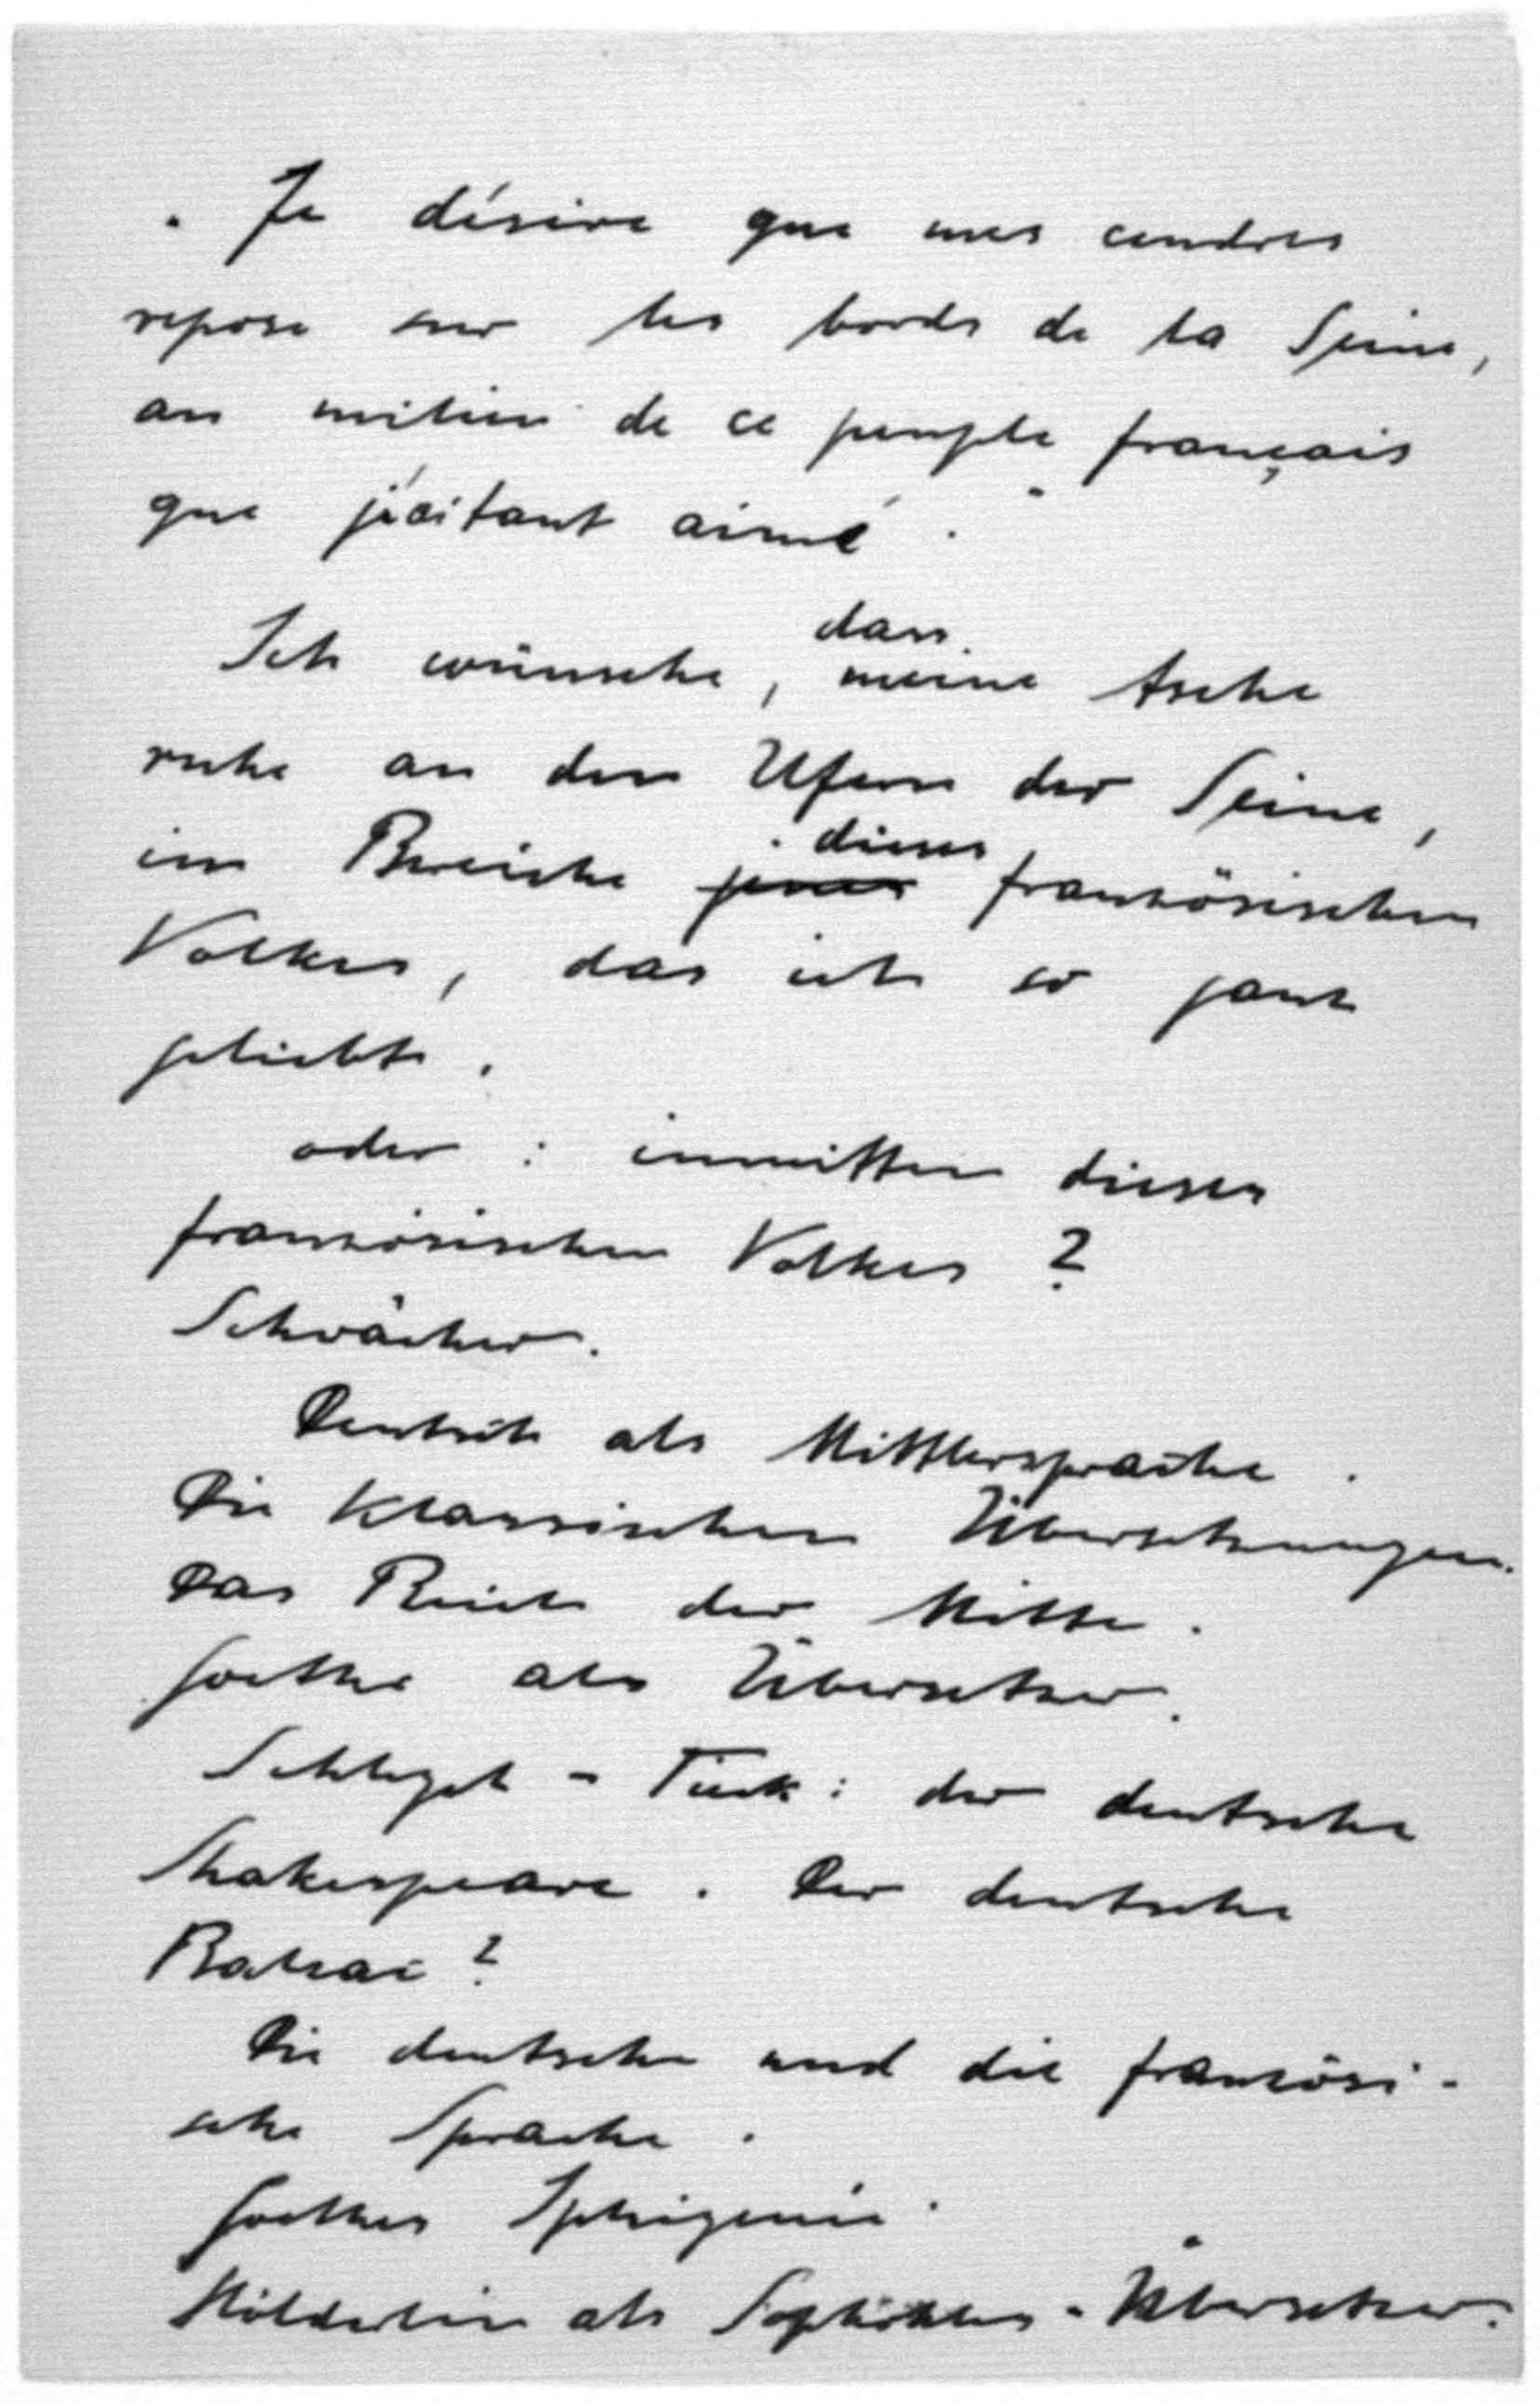 „Je désire que mes cendres
repose sur les bords de la Seine,
au milieu de ce peuple français
que j'ai tant aimé".
Ich wünsche, dass meine Asche
ruhe an den Ufern der Seine,
im Bereiche jenes dieses französischen
Volkes, das ich so ganz
geliebt.
oder: inmitten dieses
französischen Volkes?
Schwächer.
Deutsch als Mittlersprache.
Die Klassischen Übersetzungen.
Das Reich der Mitte.
Goethe als Übersetzer.
Schlegel - Tieck: der deutsche
Shakespeare. Der deutsche
Balzac?
Die deutsche und die französi-
sche Sprache.
Goethes Iphigenie.
Hölderlin als Sophokles-Übersetzer.